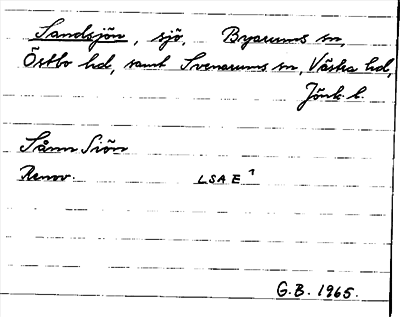 Sandsjön, sjö, Byarums sn,
Östbo hd, samt Svenarums sn, Västra hd,
Jönk. l.
Sånn Siön
Renov. LSA E 1
G.B. 1965.